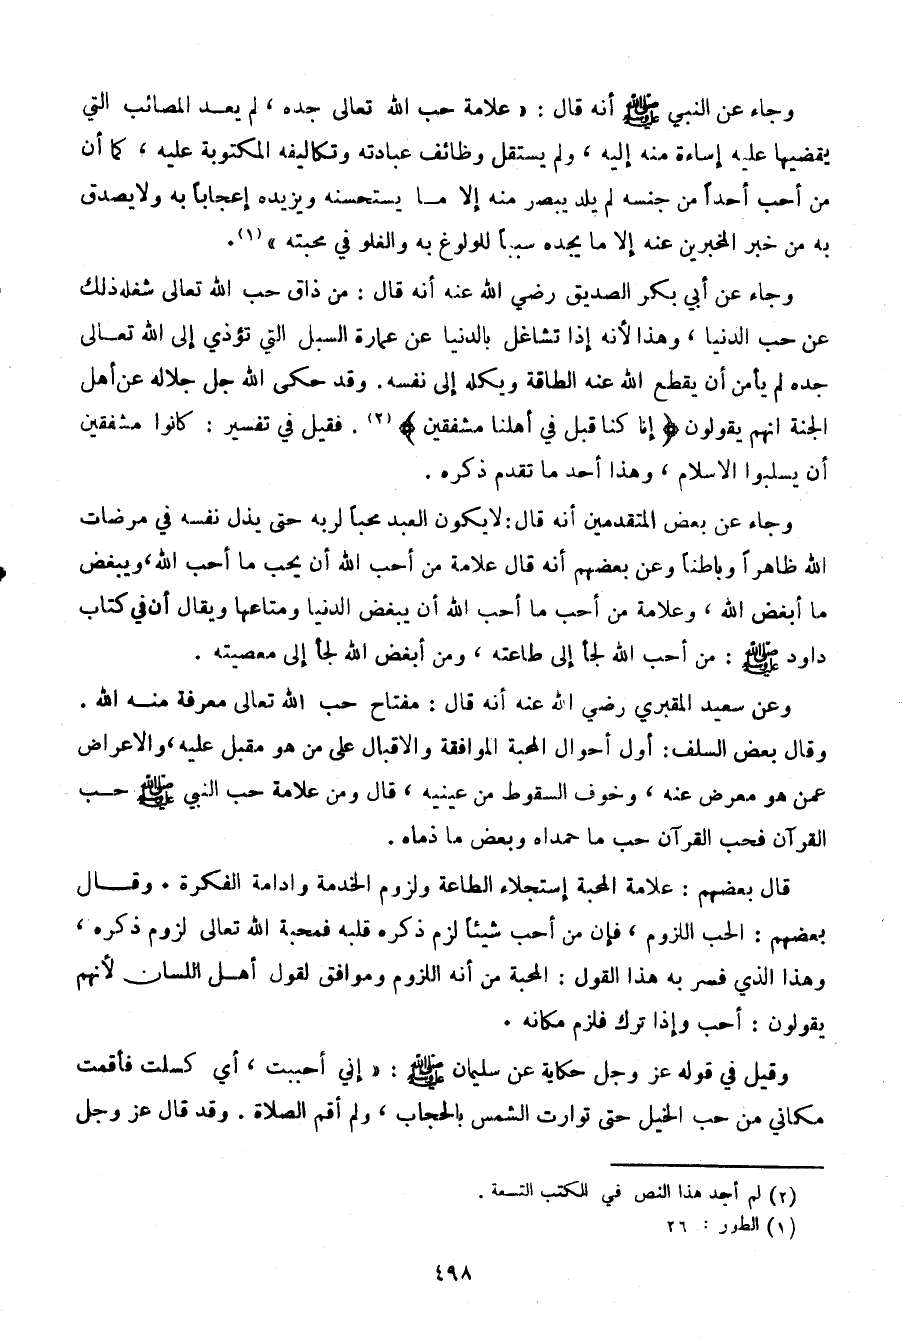 وجاء عن النبي ﷺ أنه قال : « علامة حب الله تعالى جده ، لم يعد المصائب التي
يقضيها عليه إساءة منه إليه ، ولم يستقل وظائف عبادته وتكاليفه المكتوبة عليه ، كما أن
من أحب أحداً من جنسه لم يلد يبصر منه إلا ما يستحسنه ويزيده إعجاباً به ولايصدق
به من خبر المخبرين عنه إلا ما يجده سبباً للولوغ به والغلو في محبته »(١).
وجاء عن أبي بكر الصديق رضي الله عنه أنه قال : من ذاق حب الله تعالى شغله ذلك
عن حب الدنيا ، وهذا لأنه إذا تشاغل بالدنيا عن عمارة السبل التي تؤذي إلى الله تعالى
جده لم يأمن أن يقطع الله عنه الطاقة ويكله إلى نفسه. وقد حكى الله جل جلاله عن أهل
الجنة انهم يقولون ﴿ إنا كنا قبل في أهلنا مشفقين ﴾ (٢) . فقيل في تفسير : كانوا مشفقين
أن يسلبوا الاسلام ، وهذا أحد ما تقدم ذكره .
وجاء عن بعض المتقدمين أنه قال: لايكون العبد محباً لربه حتى يذل نفسه في مرضات
الله ظاهراً وباطناً وعن بعضهم أنه قال علامة من أحب الله أن يحب ما أحب الله، ويبغض
ما أبغض الله ، وعلامة من أحب ما أحب الله أن يبغض الدنيا ومتاعها ويقال أن في كتاب
داود ﷺ : من أحب الله لجأ إلى طاعته ، ومن أبغض الله لجأ إلى معصيته .
وعن سعيد المقبري رضي الله عنه أنه قال : مفتاح حب الله تعالى معرفة منه الله .
وقال بعض السلف: أول أحوال المحبة الموافقة والاقبال على من هو مقبل عليه، والاعراض
عمن هو معرض عنه ، وخوف السقوط من عينيه ، قال ومن علامة حب النبي ﷺ حب
القرآن فحب القرآن حب ما حمداه وبعض ما ذماه .
قال بعضهم : علامة المحبة إستجلاء الطاعة ولزوم الخدمة وادامة الفكرة . وقال
بعضهم : الحب اللزوم ، فإن من أحب شيئاً لزم ذكره قلبه فمحبة الله تعالى لزوم ذكره ،
وهذا الذي فسر به هذا القول : المحبة من أنه اللزوم وموافق لقول أهل اللسان لأنهم
يقولون : أحب وإذا ترك فلزم مكانه .
وقيل في قوله عز وجل حكاية عن سليمان ﷺ : « إني أحببت ، أي كسلت فأقمت
مكاني من حب الخيل حتى توارت الشمس بالحجاب ، ولم أقم الصلاة . وقد قال عز وجل
(٢) لم أجد هذا النص في الكتب التسعة .
(١) الطور : ٢٦
٤٩٨